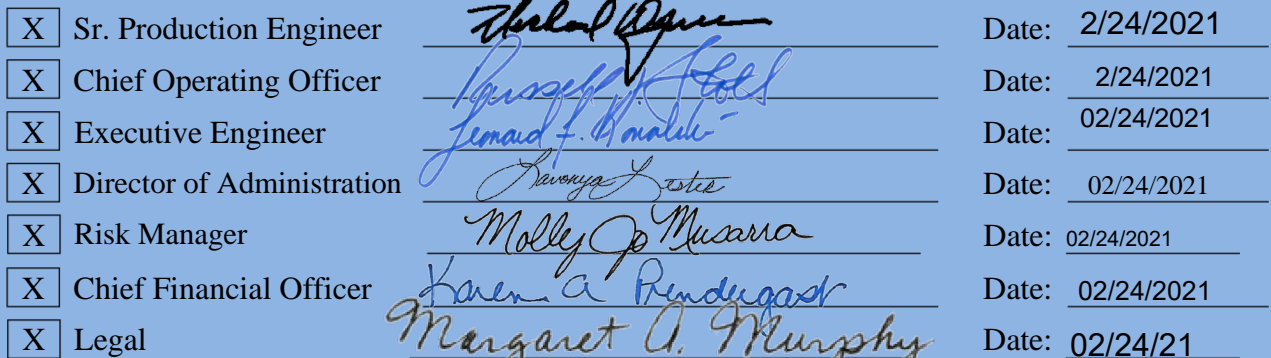 X Sr. Production Engineer Date: 2/24/2021
X Chief Operating Officer Russell J. Stoll Date: 2/24/2021
X Executive Engineer Leonard F. Kowalski Date: 02/24/2021
X Director of Administration Lavonya Lester Date: 02/24/2021
X Risk Manager Molly Jo Musarra Date: 02/24/2021
X Chief Financial Officer Karen A Prendergast Date: 02/24/2021
X Legal Margaret A. Murphy Date: 02/24/21